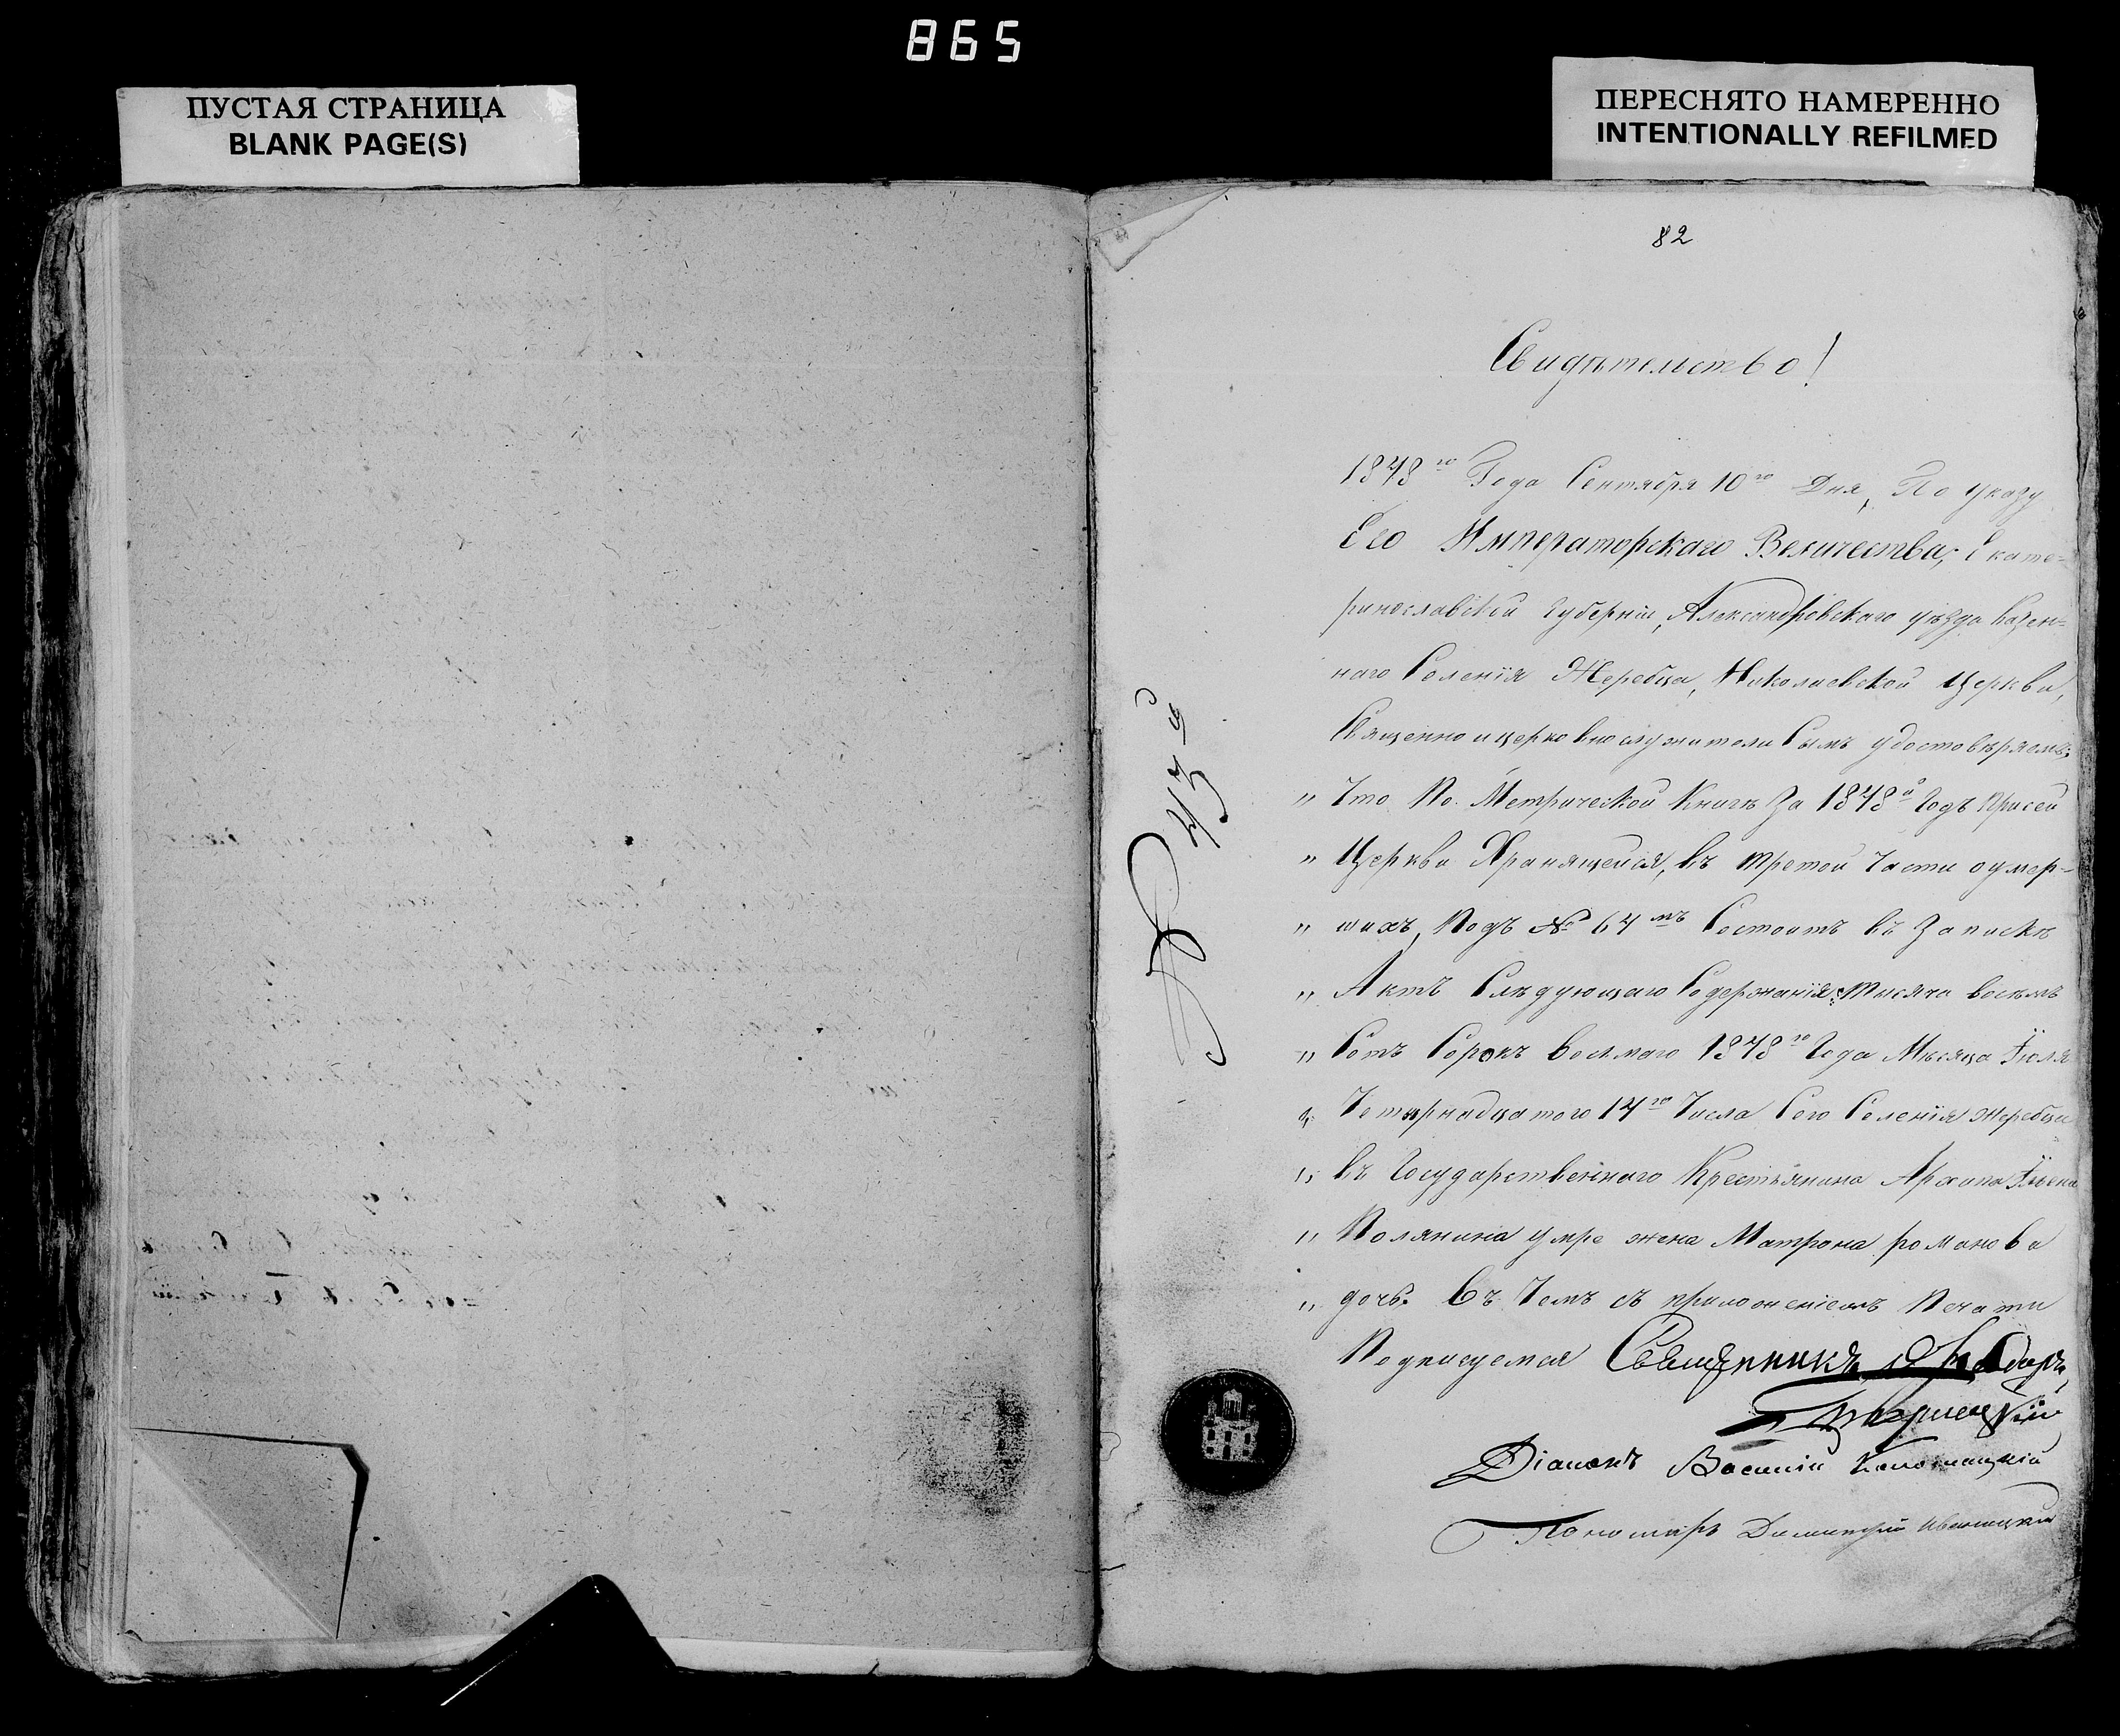 865
ПУСТАЯ СТРАНИЦА
BLANK PAGE(S)
ПЕРЕСНЯТО НАМЕРЕННО
INTENTIONALLY REFILMED
82
Свидѣтельство!
1848го Года Сентября 10го Дня, По указу
Его Императорскаго Величества; Екате=
ринославской губерніи, Александровскаго уѣзда Казен=
наго Селенія Жеребца, Николаевской Церкви,
Священно и церковно служители Симъ удостовѣряемъ;
„ Что По Метрической Книгѣ За 1848й Годъ Присей
„ Церкви Хранящейся, въ третой Части о умер-
„ шихъ, Подъ № 64мъ Состоитъ въ Запискѣ
„ Актъ Слѣдующаго Содержанія: Тысяча восемъ
„ Сотъ Сорокъ восмаго 1848го Года Мѣсяца Іюля
„ Четырнадцатого 14го Числа Сего Селенія Жеребца
„ въ Государственнаго Крестьянина Архипа
„ Полянина умре жена Матрона романова
„ дочь. Въ Чемъ съ приложеніемъ Печати
Подписуемся Священникъ
Діаконъ Василій
Пономарь Димитрій